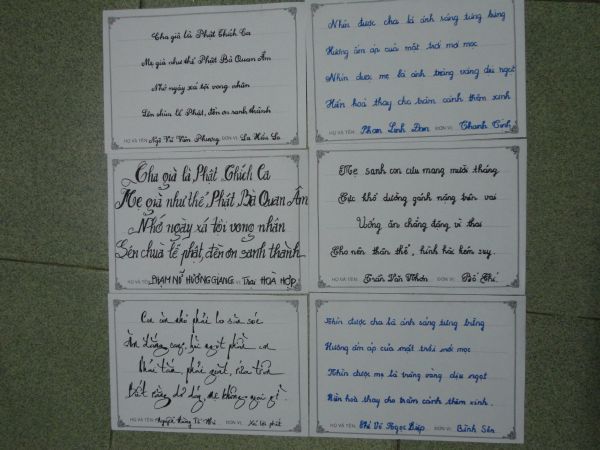 Cha già là Phật Thích Ca
Mẹ già như thể Phật Bà Quan Âm
Nhớ ngày xá tội vong nhân
Lên chùa lễ Phật, đền ơn sanh thành
HỌ VÀ TÊN: Ngô Vũ Văn Phương ĐƠN VỊ:
Nhìn được cha là ánh sáng từng bừng
Hướng ấm áp của mặt trời mới mọc
Nhìn được mẹ là ánh trăng vàng dịu ngọt
Hiền hoà thay cho trăm cánh thêm xinh
HỌ VÀ TÊN: Phan Linh Đan ĐƠN VỊ: Thanh Tịnh
Cha già là Phật Thích Ca
Mẹ già như thể Phật Bà Quan Âm
Nhớ ngày xá tội vong nhân
Lên chùa lễ phật, đền ơn sanh thành
HỌ VÀ TÊN: PHẠM NỮ HƯƠNG GIANG ĐƠN VỊ: Trại HOÀ HỢP
Mẹ sanh con cưu mang mười tháng
Cực khổ dường gánh nặng trên vai
Uống ăn chẳng đặng vì thai
Cho nên thân thể, hình hài kém suy.
HỌ VÀ TÊN: Trần Văn Nhơn ĐƠN VỊ:
Con còn nhỏ phải lo săn sóc
Ăn đắng cay, bùi ngọt phần con
Phải tắm phải giặt, rửa trôn
Biết rằng dơ dáy, mẹ không ngại gì.
HỌ VÀ TÊN: Nguyễn ĐƠN VỊ:
Nhìn được cha là ánh sáng từng bừng
Hướng ấm áp của mặt trời mới mọc
Nhìn được mẹ là trăng vàng dịu ngọt
Hiền hoà thay cho trăm cánh thêm xinh.
HỌ VÀ TÊN: Võ Ngọc Diệp ĐƠN VỊ: Bình Sơn